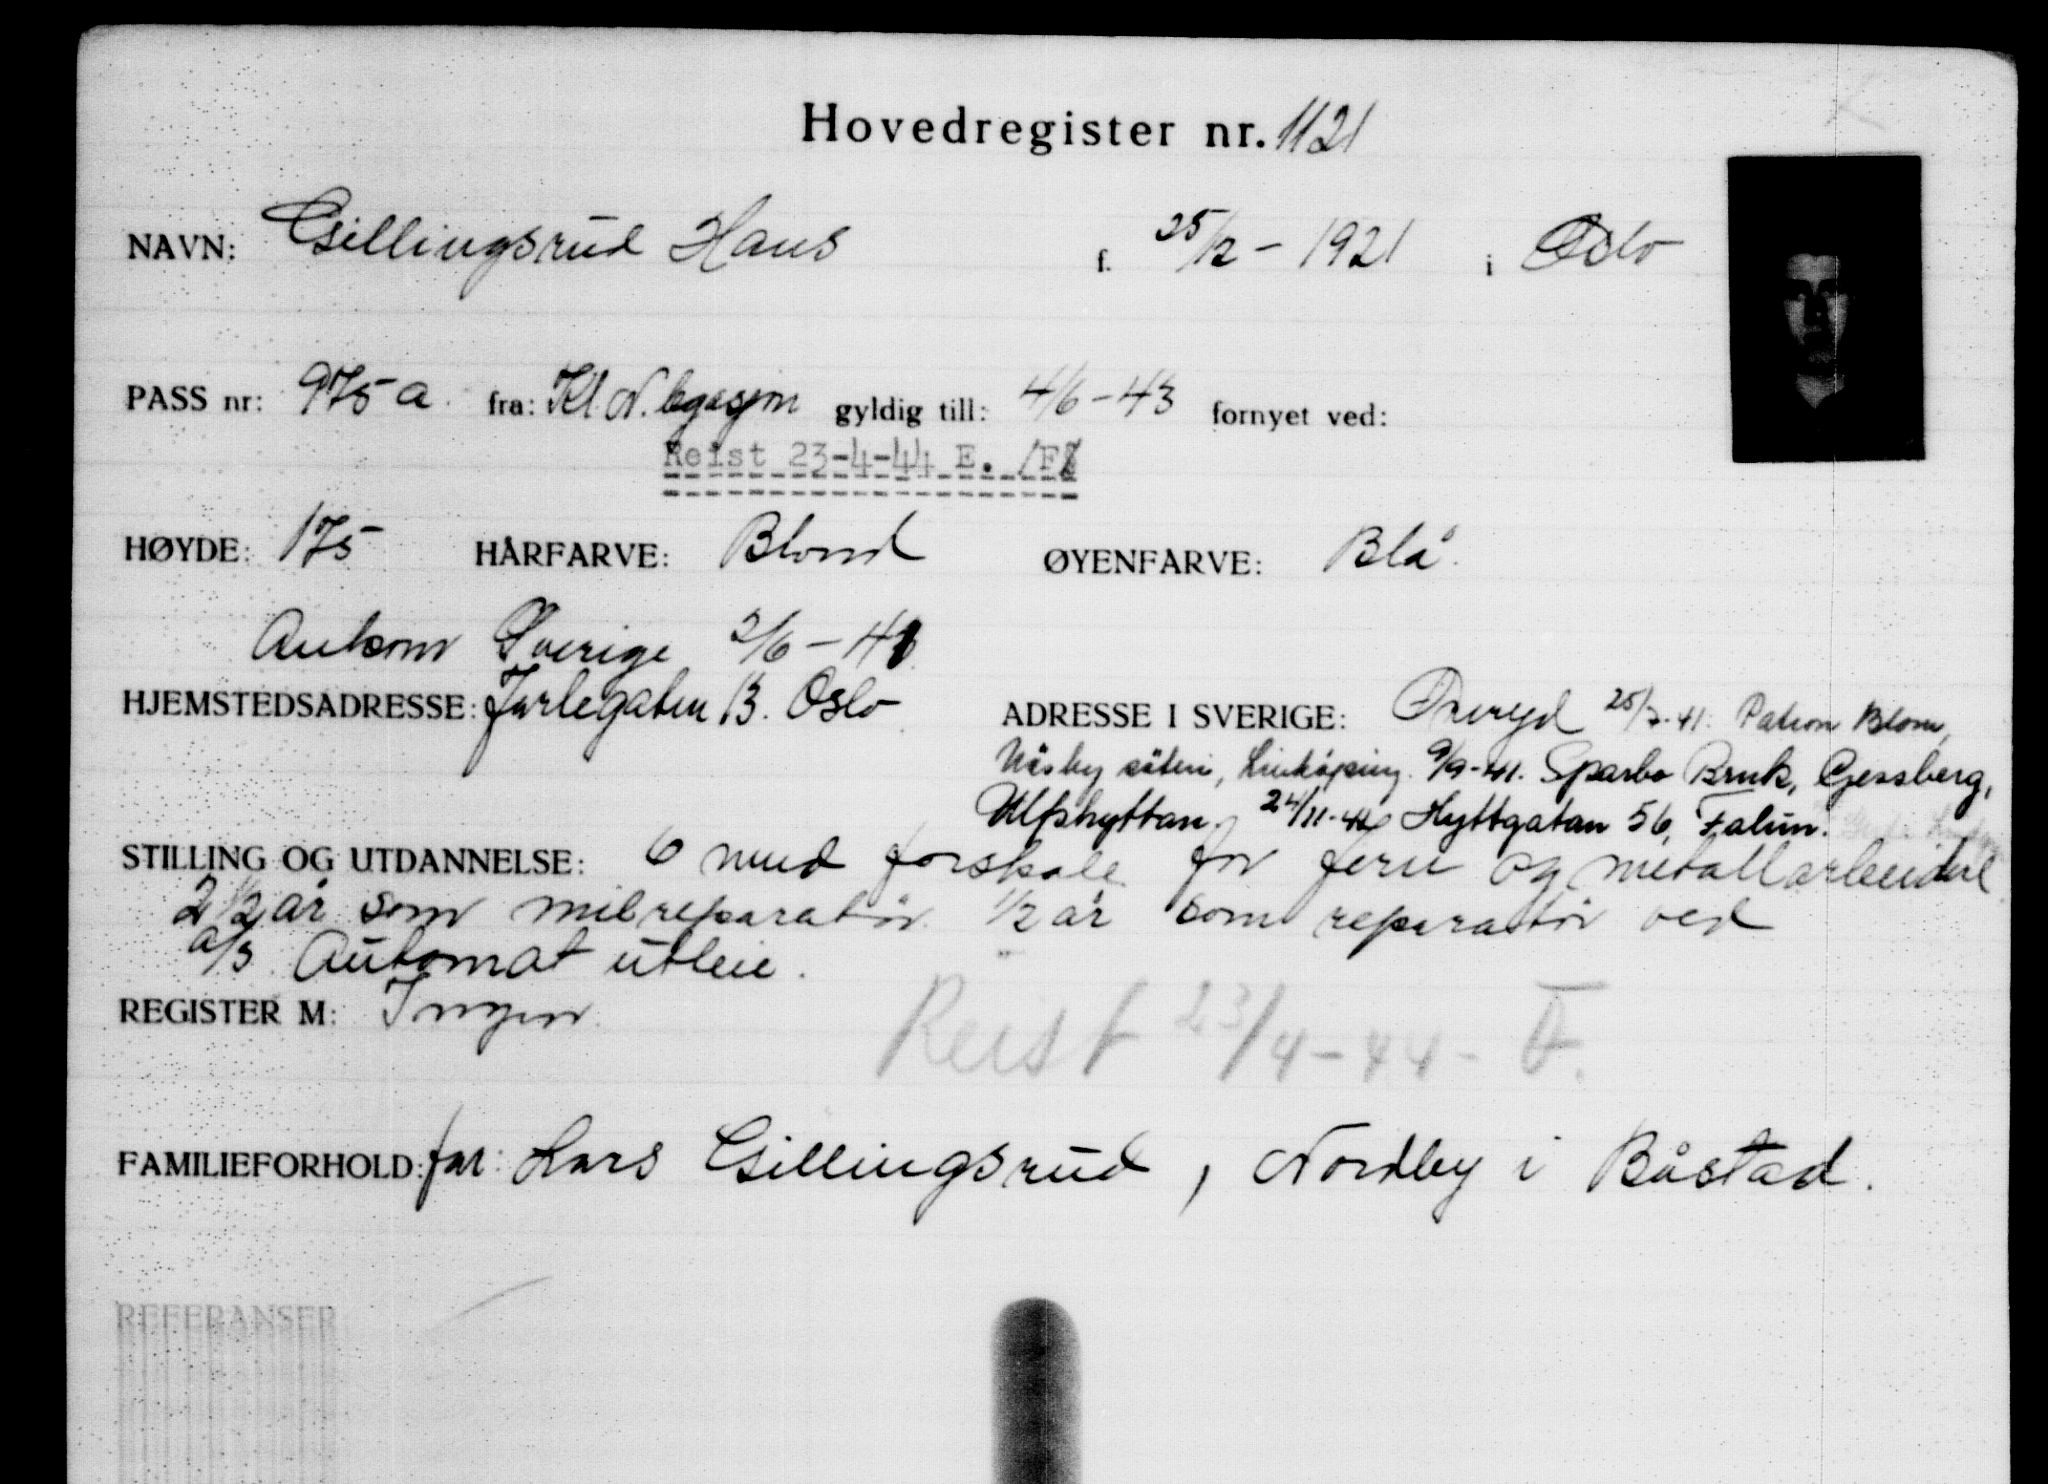 Hovedregister nr. 1121
NAVN: Gillingsrud Hans f. 25/2 - 1921 i Oslo
PASS nr: 975 a. fra: Kl. N. legasjon gyldig till: 4/6 - 43 fornyet ved:
Reist 23-4-44 E. /F
HØYDE: 175 HÅRFARVE: Blond ØYENFARVE: Blå.
Ankom Sverige 2/6 - 41
HJEMSTEDSADRESSE: Jarlegaten 13. Oslo ADRESSE I SVERIGE: Öreryd 25/7-41: Patron Blom,
Näsby säteri, Linköping. 9/9-41. Sparbo Bruk, Gessberg,
Ulfshyttan. 24/11-41 Hyttgatan 56, Falun.
STILLING OG UTDANNELSE: 6 mnd forskole for jern og metallarbeidere
2 1/2 år som bilreparatør. 1/2 år som reparatør ved
a/s Automat utleie.
REGISTER M: Ingen.
Reist 23/4-44- F.
FAMILIEFORHOLD: far: Lars Gillingsrud, Nordby i Båstad.
REFERANSER